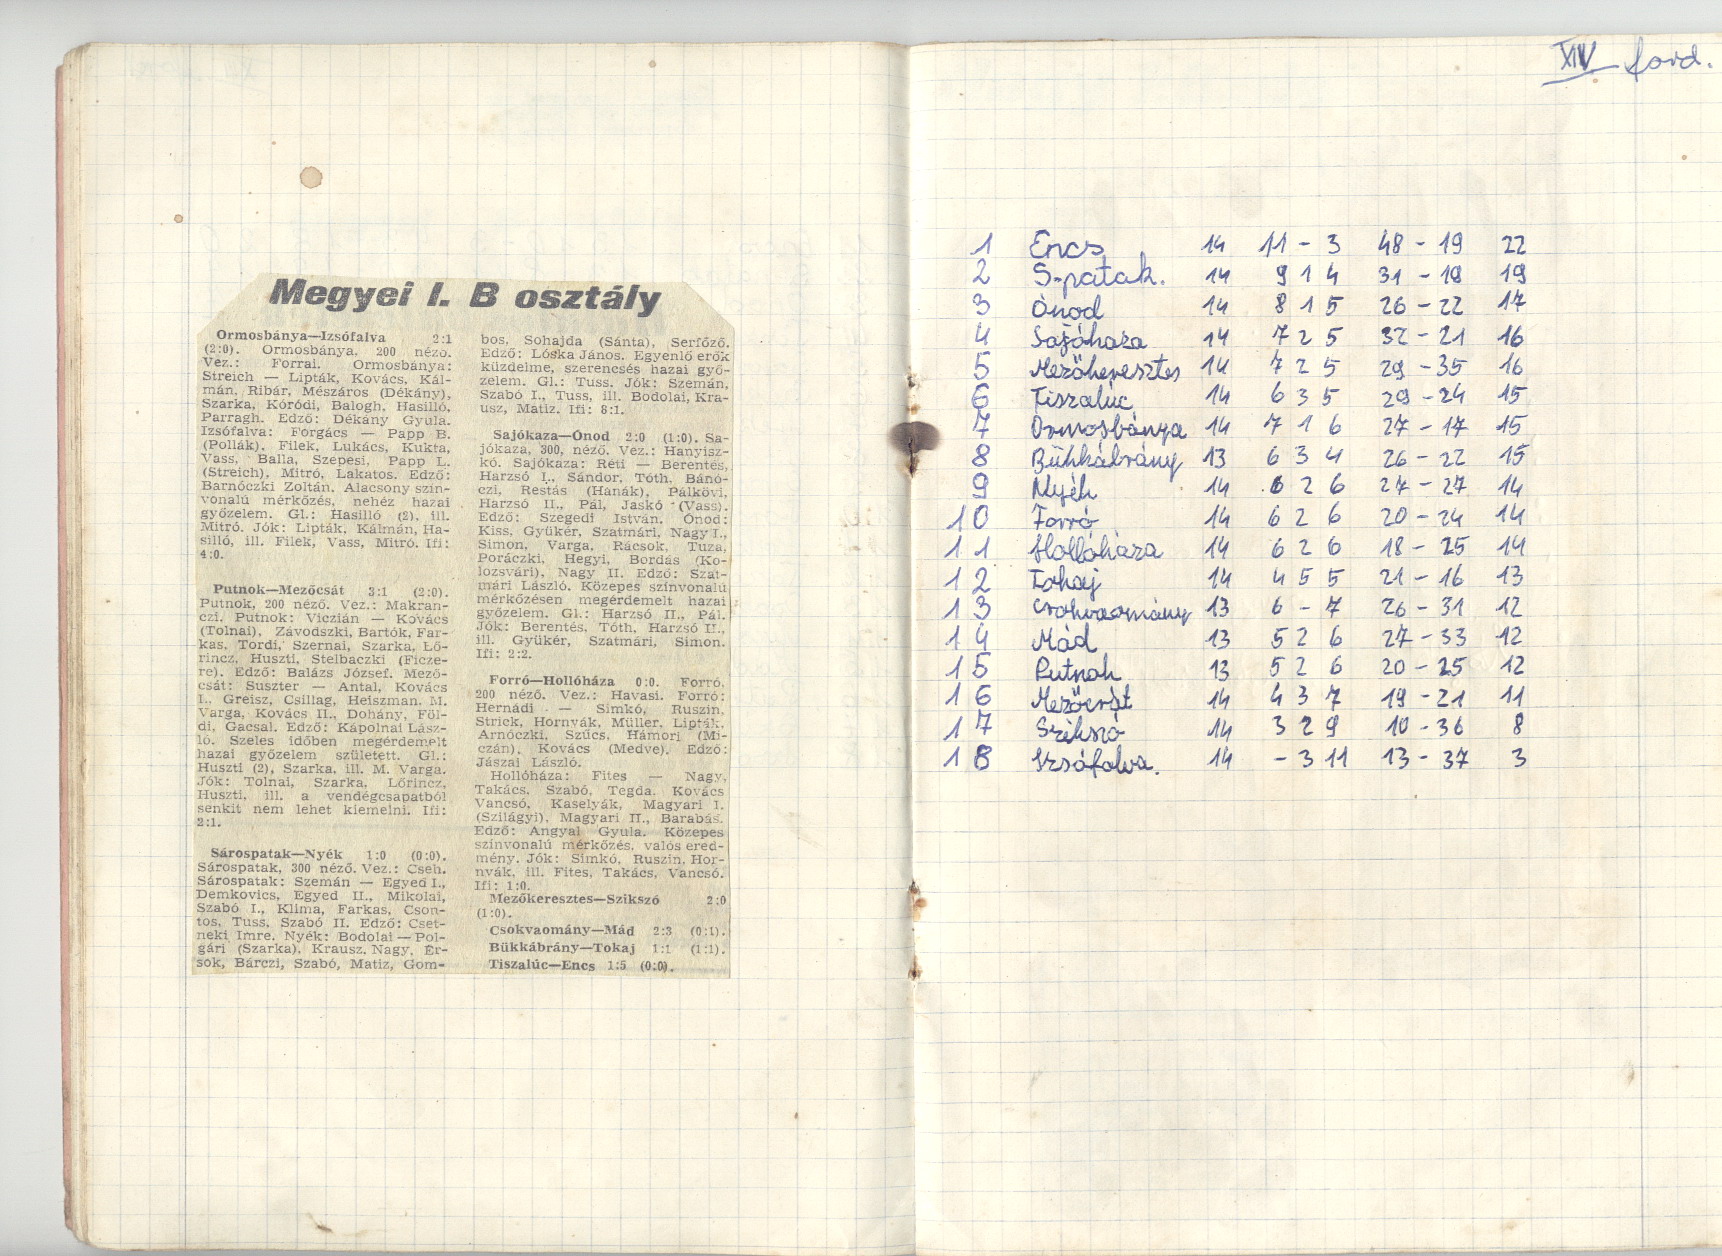 Megyei I. B osztály
Ormosbánya—Izsófalva 2:1
(2:0). Ormosbánya, 200 néző.
Vez.: Forrai. Ormosbánya:
Streich — Lipták, Kovács, Kál-
mán, Ribár, Mészáros (Dékány),
Szarka, Kóródi, Balogh, Hasilló,
Parragh. Edző: Dékány Gyula.
Izsófalva: Forgács — Papp B.
(Pollák), Filek, Lukács, Kukta,
Vass, Balla, Szepesi, Papp L.
(Streich), Mitró, Lakatos. Edző:
Barnóczki Zoltán. Alacsony szín-
vonalú mérkőzés, nehéz hazai
győzelem. Gl.: Hasilló (2), ill.
Mitró. Jók: Lipták, Kálmán, Ha-
silló, ill. Filek, Vass, Mitró. Ifi:
4:0.
Putnok—Mezőcsát 3:1 (2:0).
Putnok, 200 néző. Vez.: Makran-
czi. Putnok: Viczián — Kovács
(Tolnai), Závodszki, Bartók, Far-
kas, Tordi, Szernai, Szarka, Lő-
rincz, Huszti, Stelbaczki (Ficze-
re). Edző: Balázs József. Mező-
csát: Suszter — Antal, Kovács
I., Greisz, Csillag, Heiszman, M.
Varga, Kovács II., Dohány, Föl-
di, Gacsal. Edző: Kápolnai Lász-
ló. Szeles időben megérdemelt
hazai győzelem született. Gl.:
Huszti (2), Szarka, ill. M. Varga.
Jók: Tolnai, Szarka, Lőrincz,
Huszti, ill. a vendégcsapatból
senkit nem lehet kiemelni. Ifi:
2:1.
Sárospatak—Nyék 1:0 (0:0).
Sárospatak, 300 néző. Vez.: Cseh.
Sárospatak: Szemán — Egyed I.,
Demkovics, Egyed II., Mikolai,
Szabó I., Klima, Farkas, Cson-
tos, Tuss, Szabó II. Edző: Cset-
neki Imre. Nyék: Bodolai — Pol-
gári (Szarka), Krausz, Nagy, Ér-
sok, Bárczi, Szabó, Matiz, Gom-
bos, Sohajda (Sánta), Serfőző.
Edző: Lóska János. Egyenlő erők
küzdelme, szerencsés hazai győ-
zelem. Gl.: Tuss. Jók: Szemán,
Szabó I., Tuss, ill. Bodolai, Kra-
usz, Matiz. Ifi: 8:1.
Sajókaza—Ónod 2:0 (1:0). Sa-
jókaza, 300, néző. Vez.: Hanyisz-
kó. Sajókaza: Réti — Berentés,
Harzsó I., Sándor, Tóth, Bánó-
czi, Restás (Hanák), Pálkövi,
Harzsó II., Pál, Jaskó (Vass).
Edző: Szegedi István. Ónod:
Kiss, Gyükér, Szatmári, Nagy I.,
Simon, Varga, Rácsok, Tuza,
Poráczki, Hegyi, Bordás (Ko-
lozsvári), Nagy II. Edző: Szat-
mári László. Közepes színvonalú
mérkőzésen megérdemelt hazai
győzelem. Gl.: Harzsó II., Pál.
Jók: Berentés, Tóth, Harzsó II.,
ill. Gyükér, Szatmári, Simon.
Ifi: 2:2.
Forró—Hollóháza 0:0. Forró,
200 néző. Vez.: Havasi. Forró:
Hernádi — Simkó, Ruszin,
Strick, Hornyák, Müller, Lipták,
Arnóczki, Szűcs, Hámori (Mi-
czán), Kovács (Medve). Edző:
Jászai László.
Hollóháza: Fites — Nagy,
Takács, Szabó, Tegda, Kovács
Vancsó, Kaselyák, Magyari I.
(Szilágyi), Magyari II., Barabás.
Edző: Angyal Gyula. Közepes
színvonalú mérkőzés, valós ered-
mény. Jók: Simkó, Ruszin, Hor-
nyák, ill. Fites, Takács, Vancsó.
Ifi: 1:0.
Mezőkeresztes—Szikszó 2:0
(1:0).
Csokvaomány—Mád 2:3 (0:1).
Bükkábrány—Tokaj 1:1 (1:1).
Tiszalúc—Encs 1:5 (0:0).
XIV ford.
1 Encs 14 11 - 3 48 - 19 22
2 S-patak. 14 9 1 4 31 - 18 19
3 Ónod 14 8 1 5 26 - 22 17
4 Sajókaza 14 7 2 5 32 - 21 16
5 Mezőkeresztes 14 7 2 5 29 - 35 16
6 Tiszalúc 14 6 3 5 29 - 24 15
7 Ormosbánya 14 7 1 6 27 - 17 15
8 Bükkábrány 13 6 3 4 26 - 22 15
9 Nyék 14 6 2 6 27 - 27 14
10 Forró 14 6 2 6 20 - 24 14
11 Hollóháza 14 6 2 6 18 - 25 14
12 Tokaj 14 4 5 5 21 - 16 13
13 Csokvaomány 13 6 - 7 26 - 31 12
14 Mád 13 5 2 6 27 - 33 12
15 Putnok 13 5 2 6 20 - 25 12
16 Mezőcsát 14 4 3 7 19 - 21 11
17 Szikszó 14 3 2 9 10 - 36 8
18 Izsófalva. 14 - 3 11 13 - 37 3